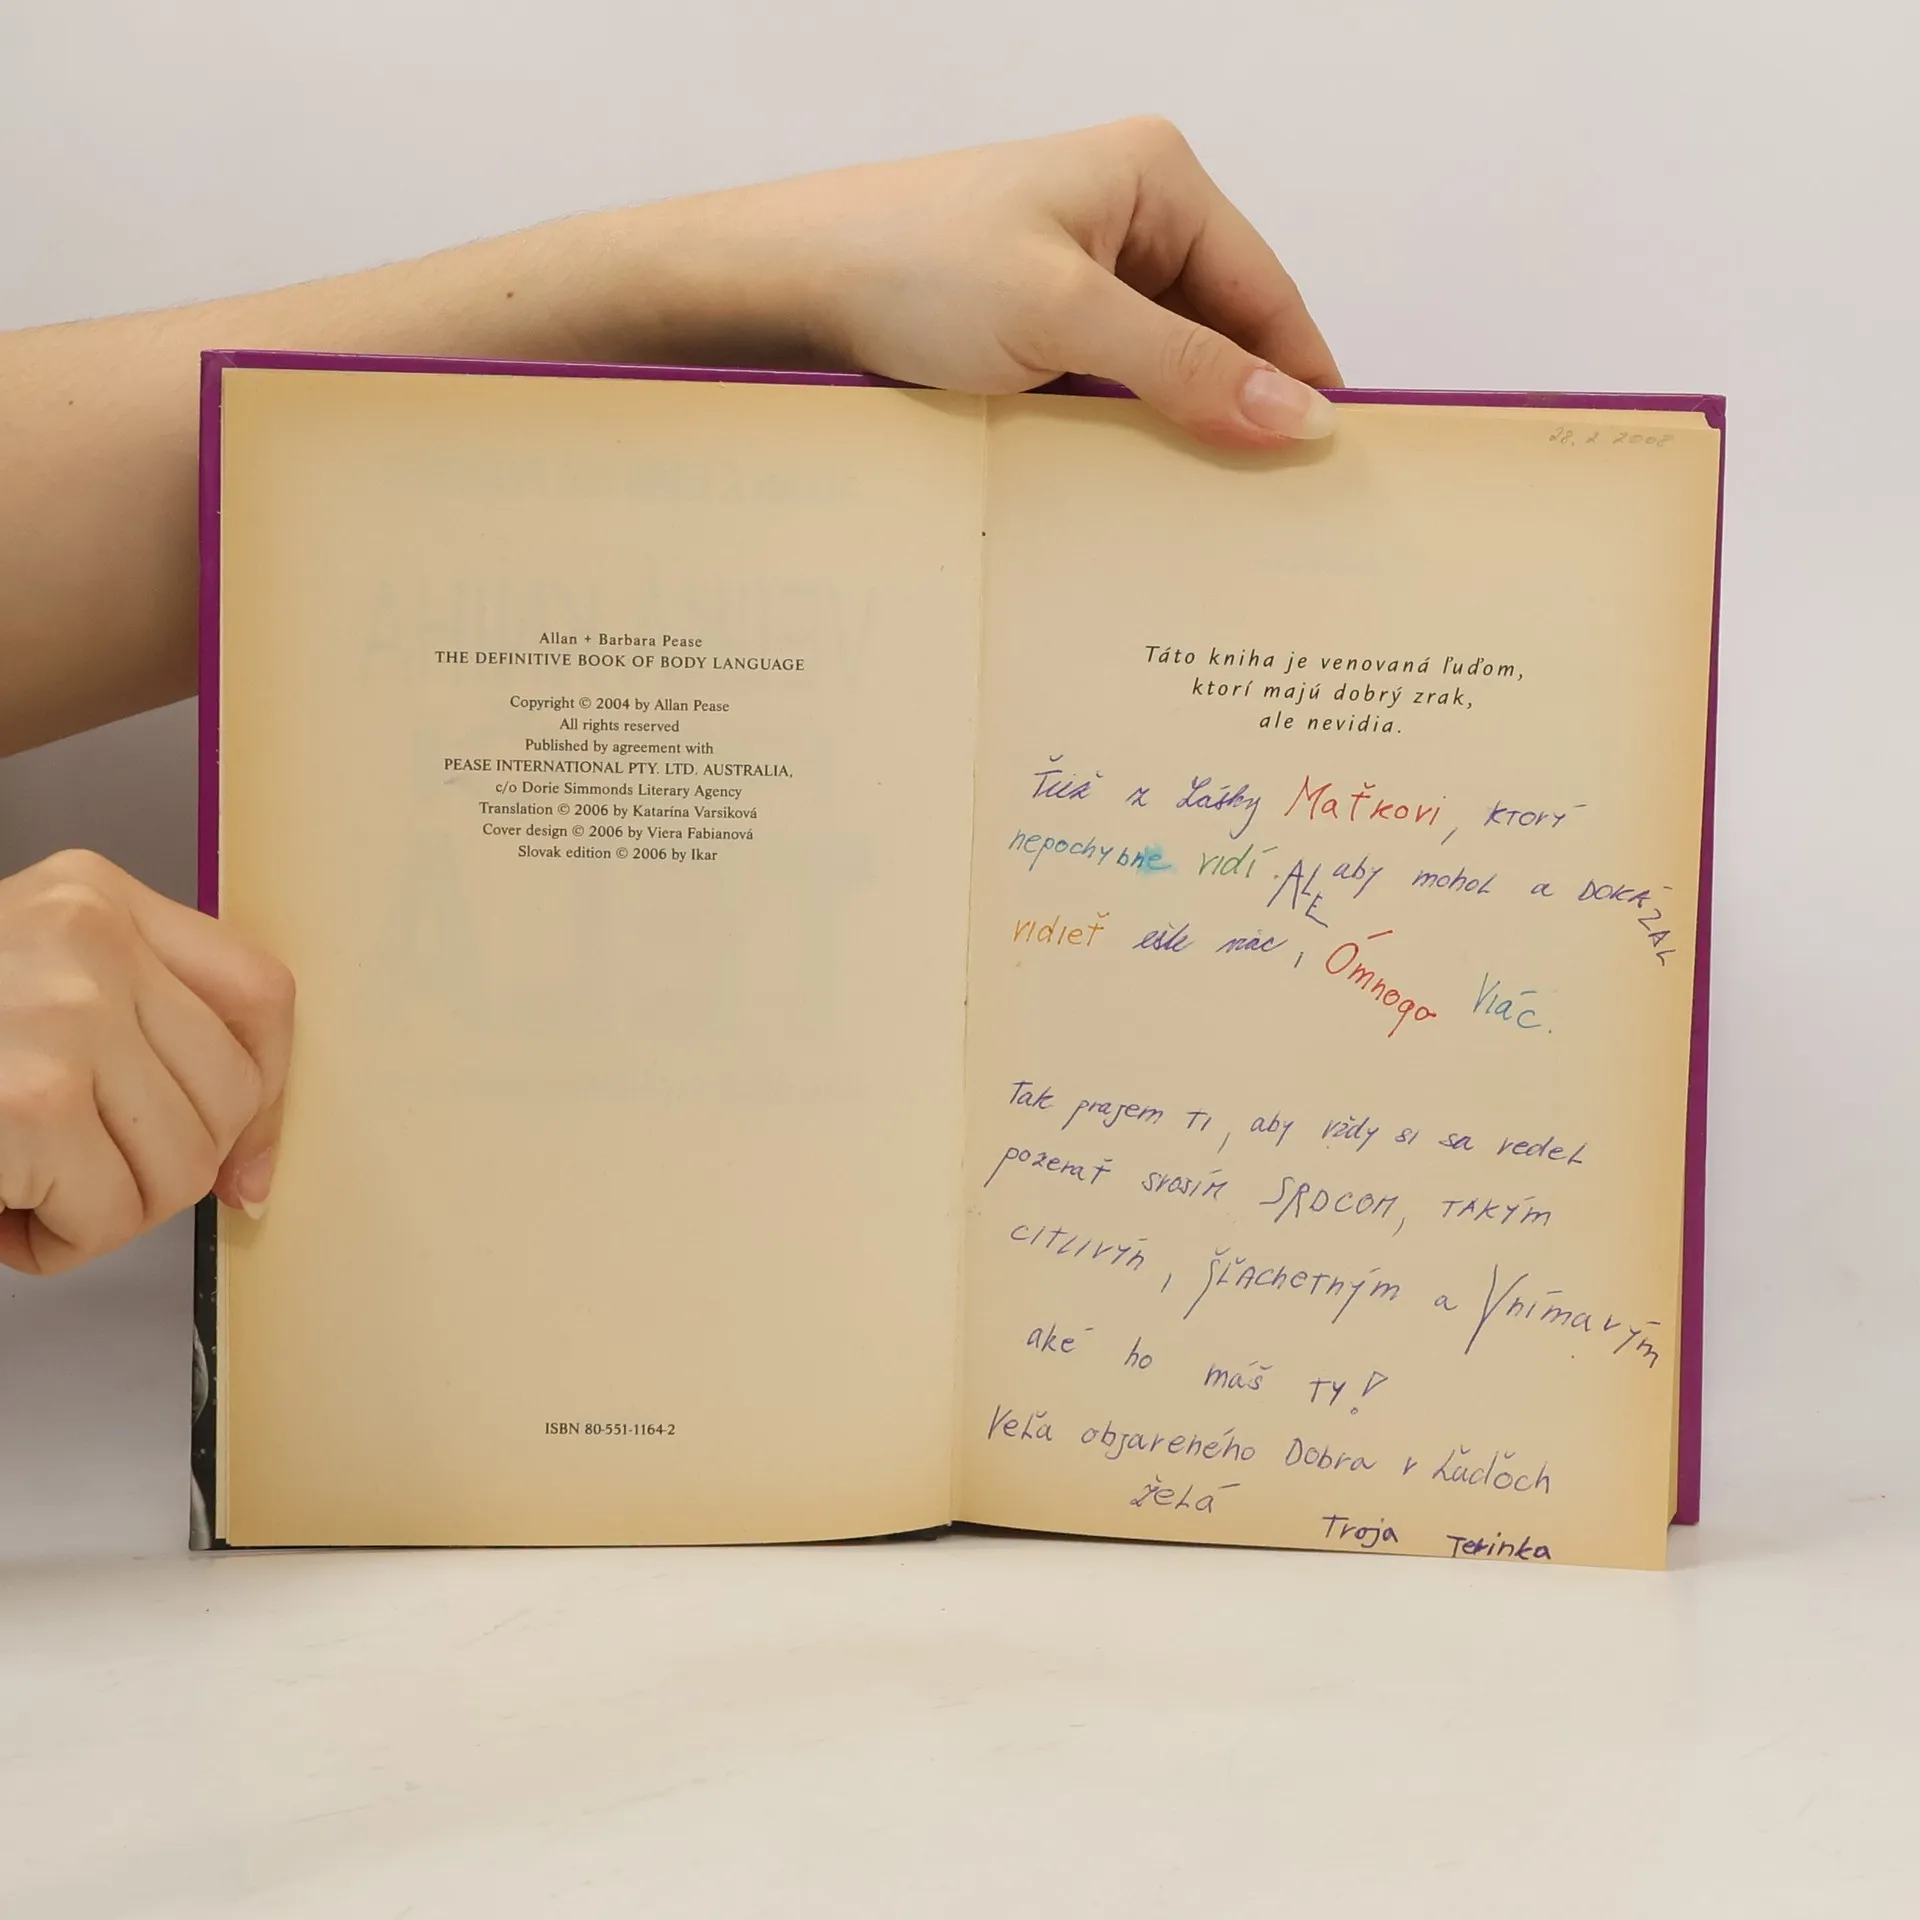 Allan + Barbara Pease
THE DEFINITIVE BOOK OF BODY LANGUAGE
Copyright © 2004 by Allan Pease
All rights reserved
Published by agreement with
PEASE INTERNATIONAL PTY. LTD. AUSTRALIA,
c/o Dorie Simmonds Literary Agency
Translation © 2006 by Katarína Varsiková
Cover design © 2006 by Viera Fabianová
Slovak edition © 2006 by Ikar
ISBN 80-551-1164-2
28. 2 2008
Táto kniha je venovaná ľuďom,
ktorí majú dobrý zrak,
ale nevidia.
z Lásky Maťkovi, ktorý
nepochybne vidí. ALE aby mohol a DOKÁZAL
vidieť ešte viac, Omnoga Viác.
Tak prajem Ti, aby vždy si sa vedel
pozerať svosím SRDCOM, TAKÝM
citlivým, šľachetným a Vnímavým
aké ho máš TY!
Veľa objaveného Dobra v Ľuďoch
želá
Troja Terinka